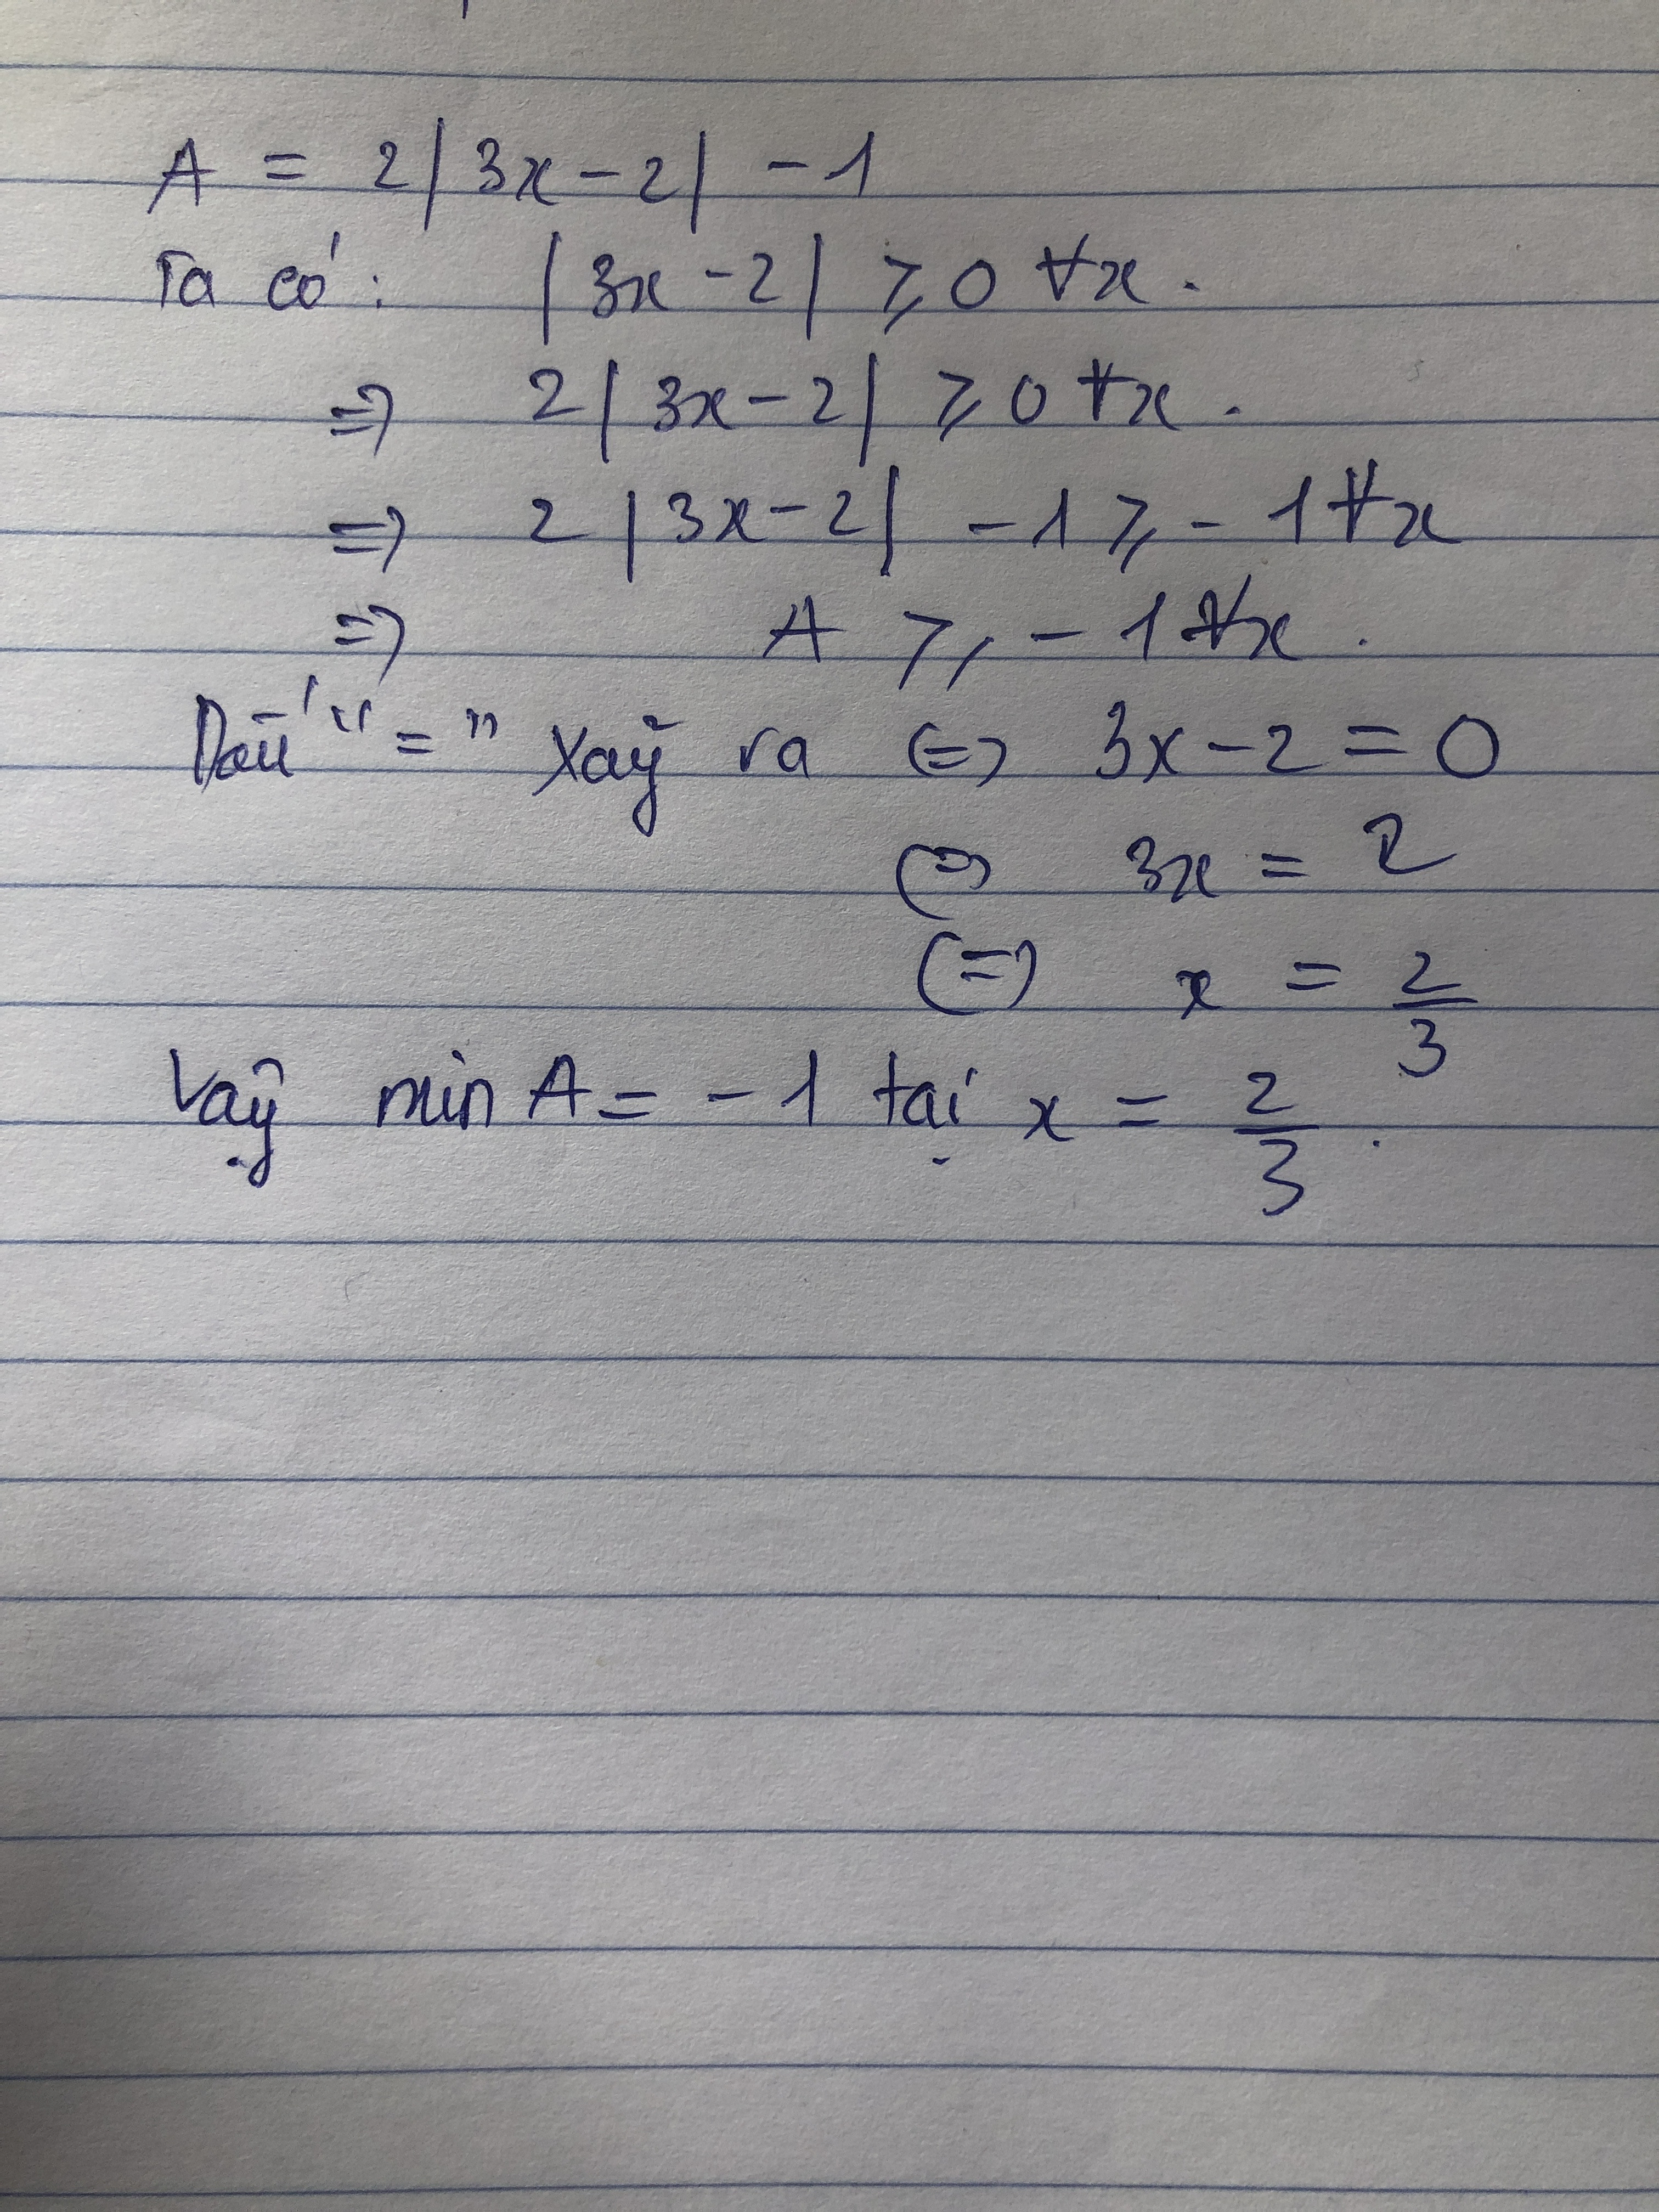 A = 2|3x-2| -1
Ta có: |3x-2| ⩾ 0 ∀x.
=> 2|3x-2| ⩾ 0 ∀x.
=> 2|3x-2| -1 ⩾ -1 ∀x
=> A ⩾ -1 ∀x.
Dấu "=" xảy ra <=> 3x-2 = 0
<=> 3x = 2
<=> x = 2/3
Vậy min A = -1 tại x = 2/3.